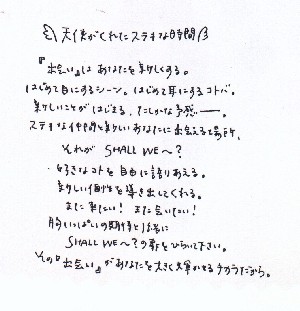 天使がくれたステキな時間
『出会い』は あなたを新しくする。
はじめて目にするシーン。はじめて耳にするコトバ。
新しいことが はじまる、たしかな予感──。
ステキな仲間と新しいあなたに出会える場所、
それが SHALL WE〜?
好きなコトを自由に語りあえる。
新しい個性を導き出してくれる。
また来たい! また会いたい!
胸いっぱいの期待と一緒に
SHALL WE〜?の扉をひらいて下さい。
その『出会い』が あなたを大きく輝かせるチカラだから。